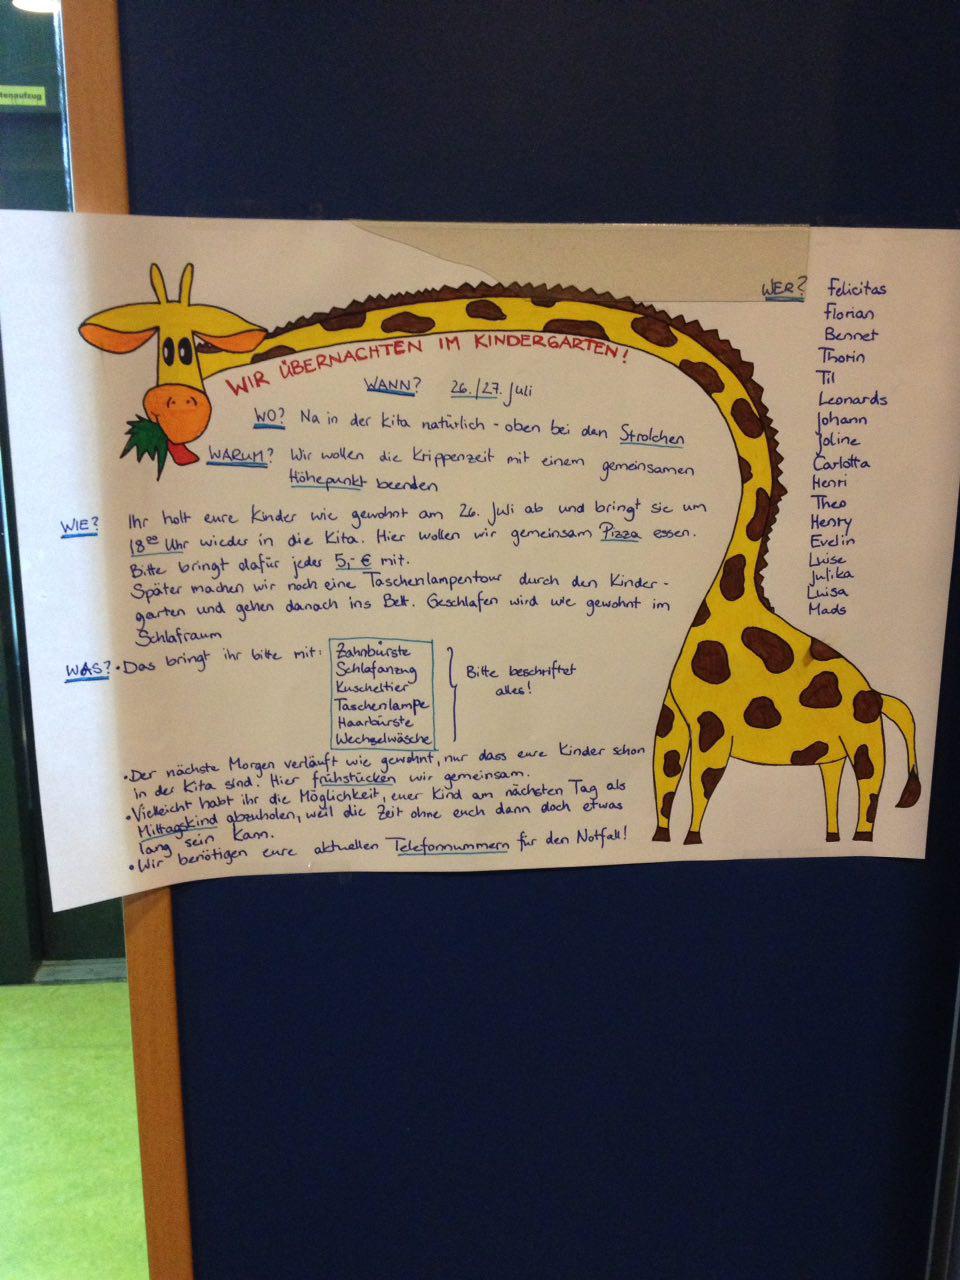 tenaufzug
WIR ÜBERNACHTEN IM KINDERGARTEN!
WANN? 26./27. Juli
WO? Na in der Kita natürlich - oben bei den Strolchen
WARUM? Wir wollen die Krippenzeit mit einem gemeinsamen
Höhepunkt beenden
WIE? Ihr holt eure Kinder wie gewohnt am 26. Juli ab und bringt sie um
18⁰⁰ Uhr wieder in die Kita. Hier wollen wir gemeinsam Pizza essen.
Bitte bringt dafür jeder 5,- € mit.
Später machen wir noch eine Taschenlampentour durch den Kinder-
garten und gehen danach ins Bett. Geschlafen wird wie gewohnt im
Schlafraum
WAS? • Das bringt ihr bitte mit:
Zahnbürste
Schlafanzug
Kuscheltier
Taschenlampe
Haarbürste
Wechselwäsche
Bitte beschriftet
alles!
• Der nächste Morgen verläuft wie gewohnt, nur dass eure Kinder schon
in der Kita sind. Hier frühstücken wir gemeinsam.
• Vielleicht habt ihr die Möglichkeit, euer Kind am nächsten Tag als
Mittagskind abzuholen, weil die Zeit ohne euch dann doch etwas
lang sein kann.
• Wir benötigen eure aktuellen Telefonnummern für den Notfall!
WER? Felicitas
Florian
Bennet
Thorin
Til
Leonards
Johann
Joline
Carlotta
Henri
Theo
Henry
Evelin
Luise
Julika
Luisa
Mads